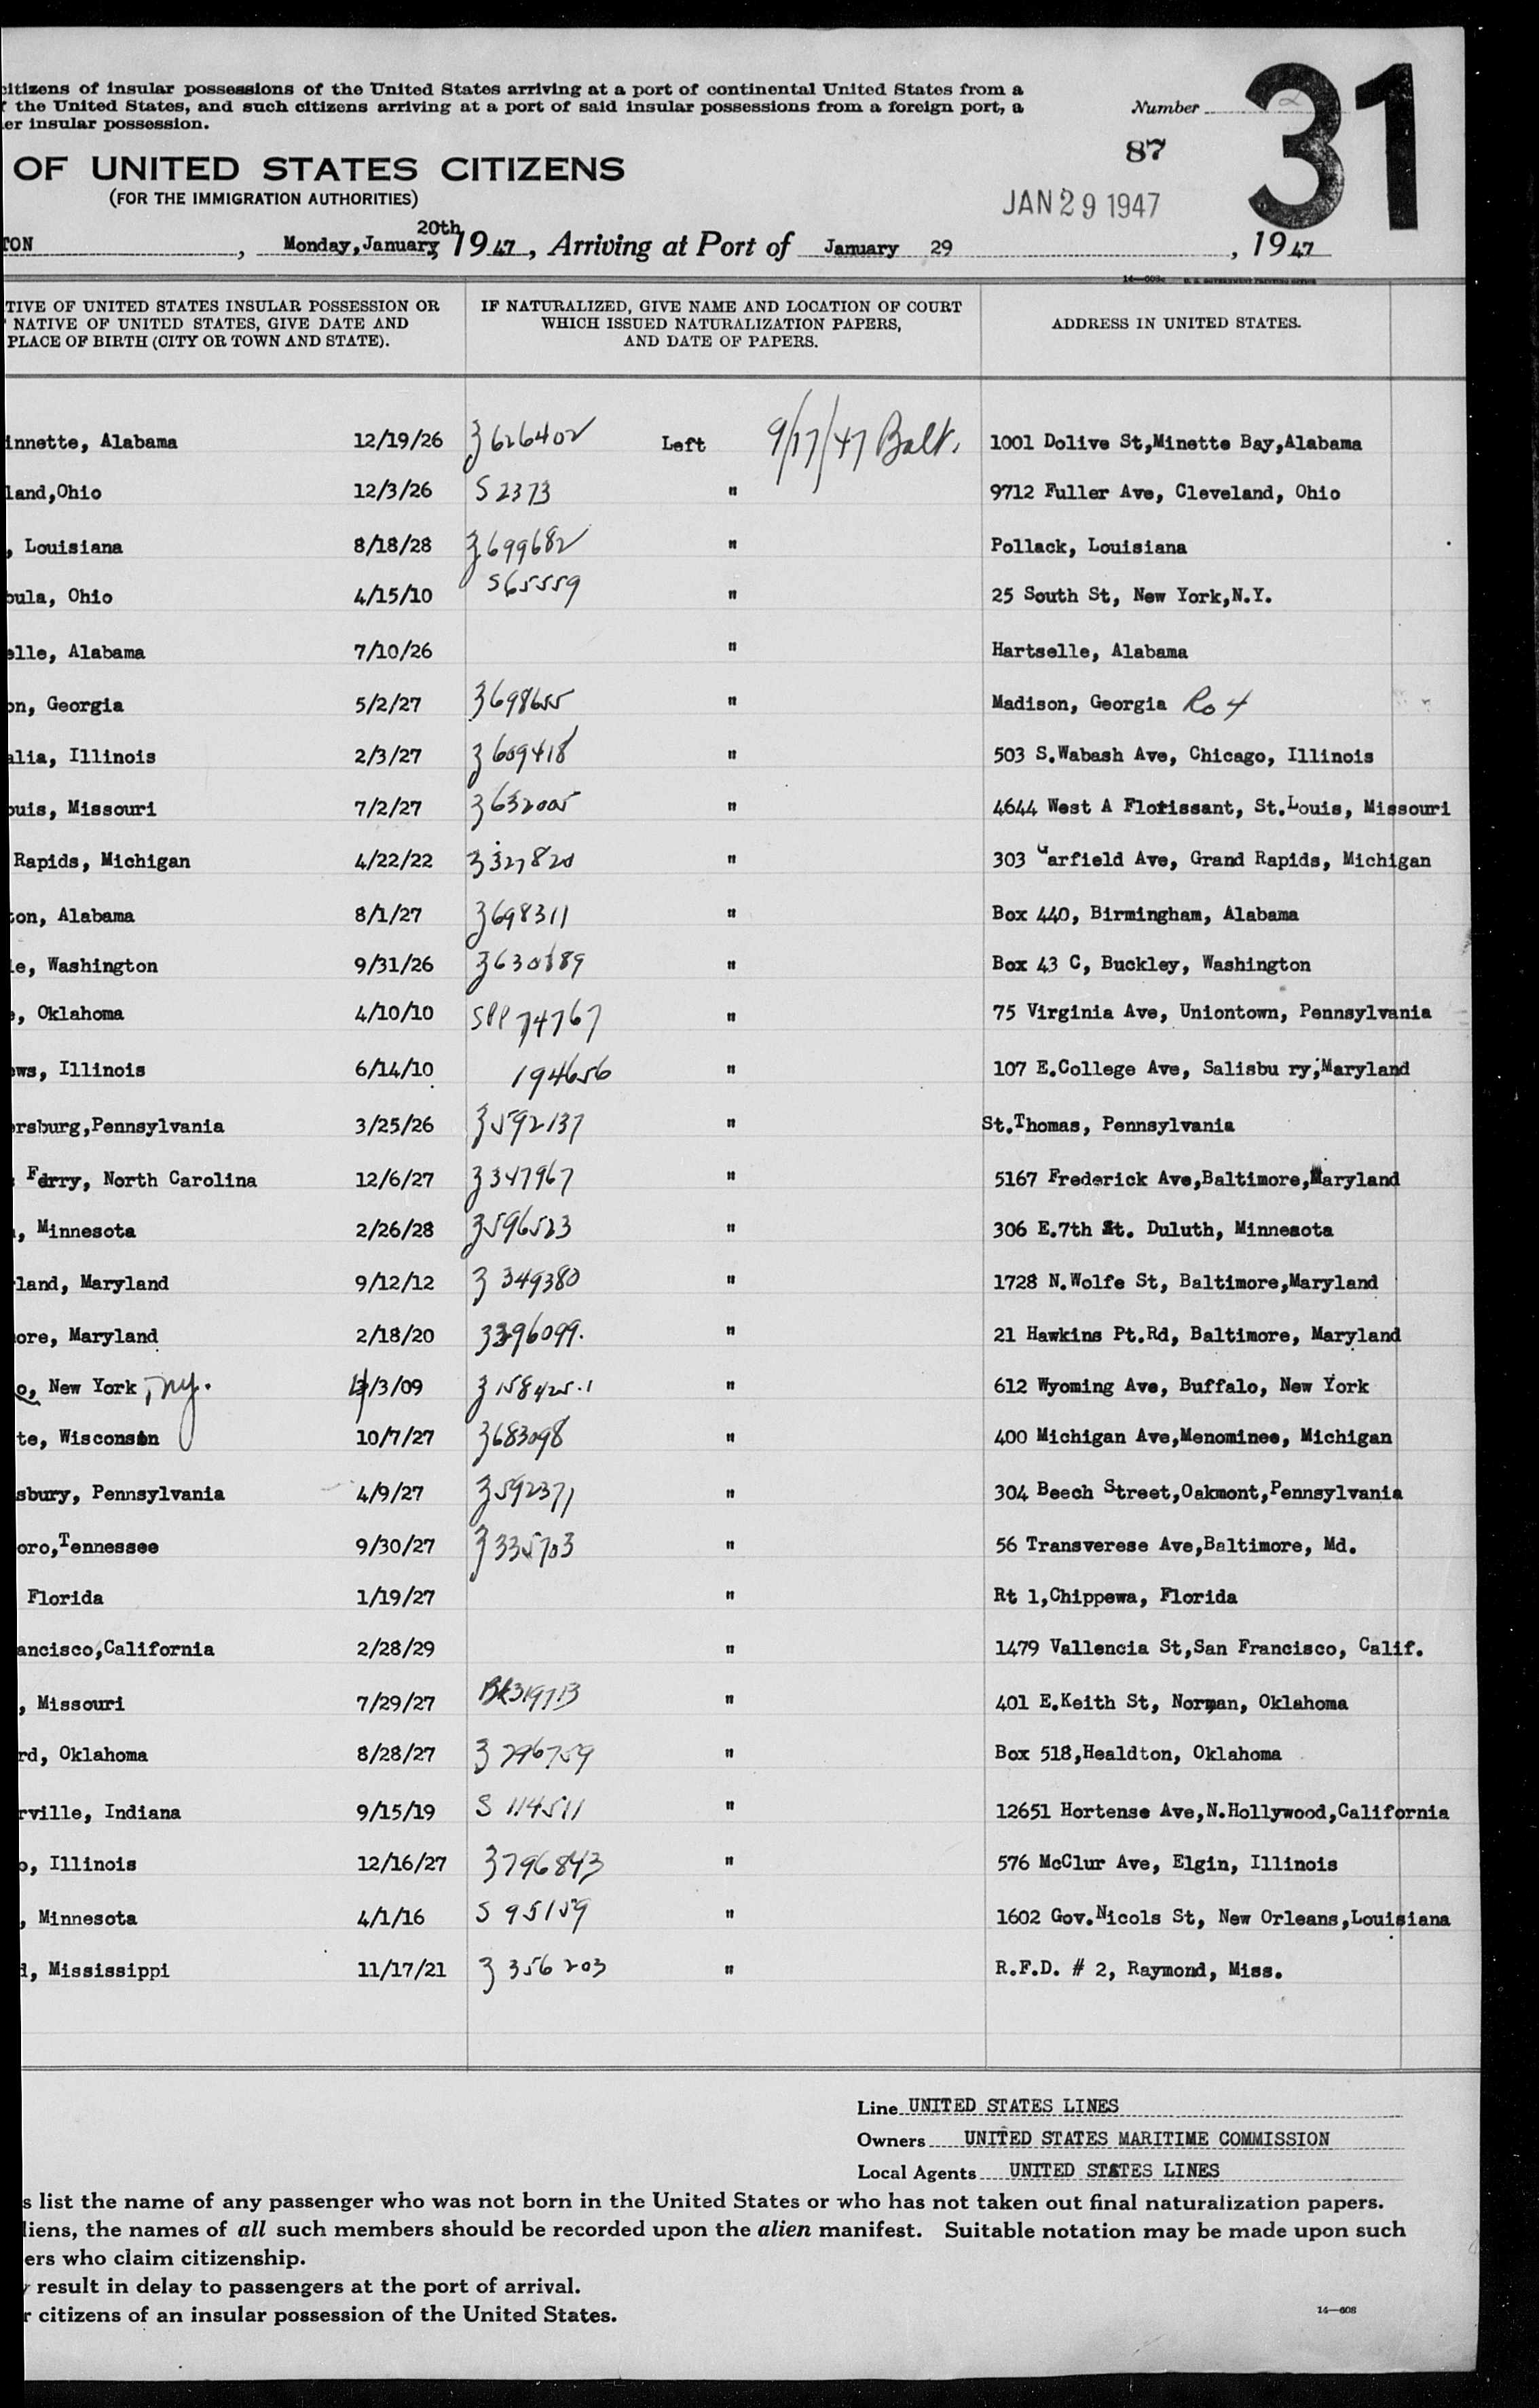 citizens of insular possessions of the United States arriving at a port of continental United States from a
the United States, and such citizens arriving at a port of said insular possessions from a foreign port, a
er insular possession.
Number
31
87
OF UNITED STATES CITIZENS
(FOR THE IMMIGRATION AUTHORITIES)
JAN 29 1947
TON , Monday, January 20th, 1947, Arriving at Port of January 29 , 1947
14—608c U. S. GOVERNMENT PRINTING OFFICE
TIVE OF UNITED STATES INSULAR POSSESSION OR
NATIVE OF UNITED STATES, GIVE DATE AND
PLACE OF BIRTH (CITY OR TOWN AND STATE).
IF NATURALIZED, GIVE NAME AND LOCATION OF COURT
WHICH ISSUED NATURALIZATION PAPERS,
AND DATE OF PAPERS.
ADDRESS IN UNITED STATES.
innette, Alabama 12/19/26 Z626402 Left 9/17/47 Balt. 1001 Dolive St,Minette Bay,Alabama
land,Ohio 12/3/26 S 2373 " 9712 Fuller Ave, Cleveland, Ohio
, Louisiana 8/18/28 Z699682 " Pollack, Louisiana
bula, Ohio 4/15/10 S65559 " 25 South St, New York,N.Y.
elle, Alabama 7/10/26 " Hartselle, Alabama
on, Georgia 5/2/27 Z698655 " Madison, Georgia Ro 4
alia, Illinois 2/3/27 Z609418 " 503 S.Wabash Ave, Chicago, Illinois
ouis, Missouri 7/2/27 Z632005 " 4644 West A Florissant, St.Louis, Missouri
Rapids, Michigan 4/22/22 Z327820 " 303 Garfield Ave, Grand Rapids, Michigan
ton, Alabama 8/1/27 Z698311 " Box 440, Birmingham, Alabama
le, Washington 9/31/26 Z630889 " Box 43 C, Buckley, Washington
, Oklahoma 4/10/10 SPP 74767 " 75 Virginia Ave, Uniontown, Pennsylvania
ows, Illinois 6/14/10 194656 " 107 E.College Ave, Salisbu ry,Maryland
ersburg,Pennsylvania 3/25/26 Z592137 " St.Thomas, Pennsylvania
Ferry, North Carolina 12/6/27 Z347967 " 5167 Frederick Ave,Baltimore,Maryland
, Minnesota 2/26/28 Z596523 " 306 E.7th St. Duluth, Minnesota
rland, Maryland 9/12/12 Z 349380 " 1728 N.Wolfe St, Baltimore,Maryland
ore, Maryland 2/18/20 Z396099. " 21 Hawkins Pt.Rd, Baltimore, Maryland
o, New York, ny. /3/09 Z158425.1 " 612 Wyoming Ave, Buffalo, New York
te, Wisconsin 10/7/27 Z683098 " 400 Michigan Ave,Menominee, Michigan
sbury, Pennsylvania 4/9/27 Z592371 " 304 Beech Street,Oakmont,Pennsylvania
oro,Tennessee 9/30/27 Z335703 " 56 Transverese Ave,Baltimore, Md.
Florida 1/19/27 " Rt 1,Chippewa, Florida
ancisco,California 2/28/29 " 1479 Vallencia St,San Francisco, Calif.
, Missouri 7/29/27 BK319713 " 401 E.Keith St, Norman, Oklahoma
rd, Oklahoma 8/28/27 Z 296759 " Box 518,Healdton, Oklahoma
rville, Indiana 9/15/19 S 114511 " 12651 Hortense Ave,N.Hollywood,California
o, Illinois 12/16/27 Z796843 " 576 McClur Ave, Elgin, Illinois
, Minnesota 4/1/16 S 95159 " 1602 Gov.Nicols St, New Orleans,Louisiana
d, Mississippi 11/17/21 Z 356203 " R.F.D. # 2, Raymond, Miss.
Line UNITED STATES LINES
Owners UNITED STATES MARITIME COMMISSION
Local Agents UNITED STATES LINES
s list the name of any passenger who was not born in the United States or who has not taken out final naturalization papers.
liens, the names of all such members should be recorded upon the alien manifest. Suitable notation may be made upon such
ers who claim citizenship.
result in delay to passengers at the port of arrival.
r citizens of an insular possession of the United States.
14—608